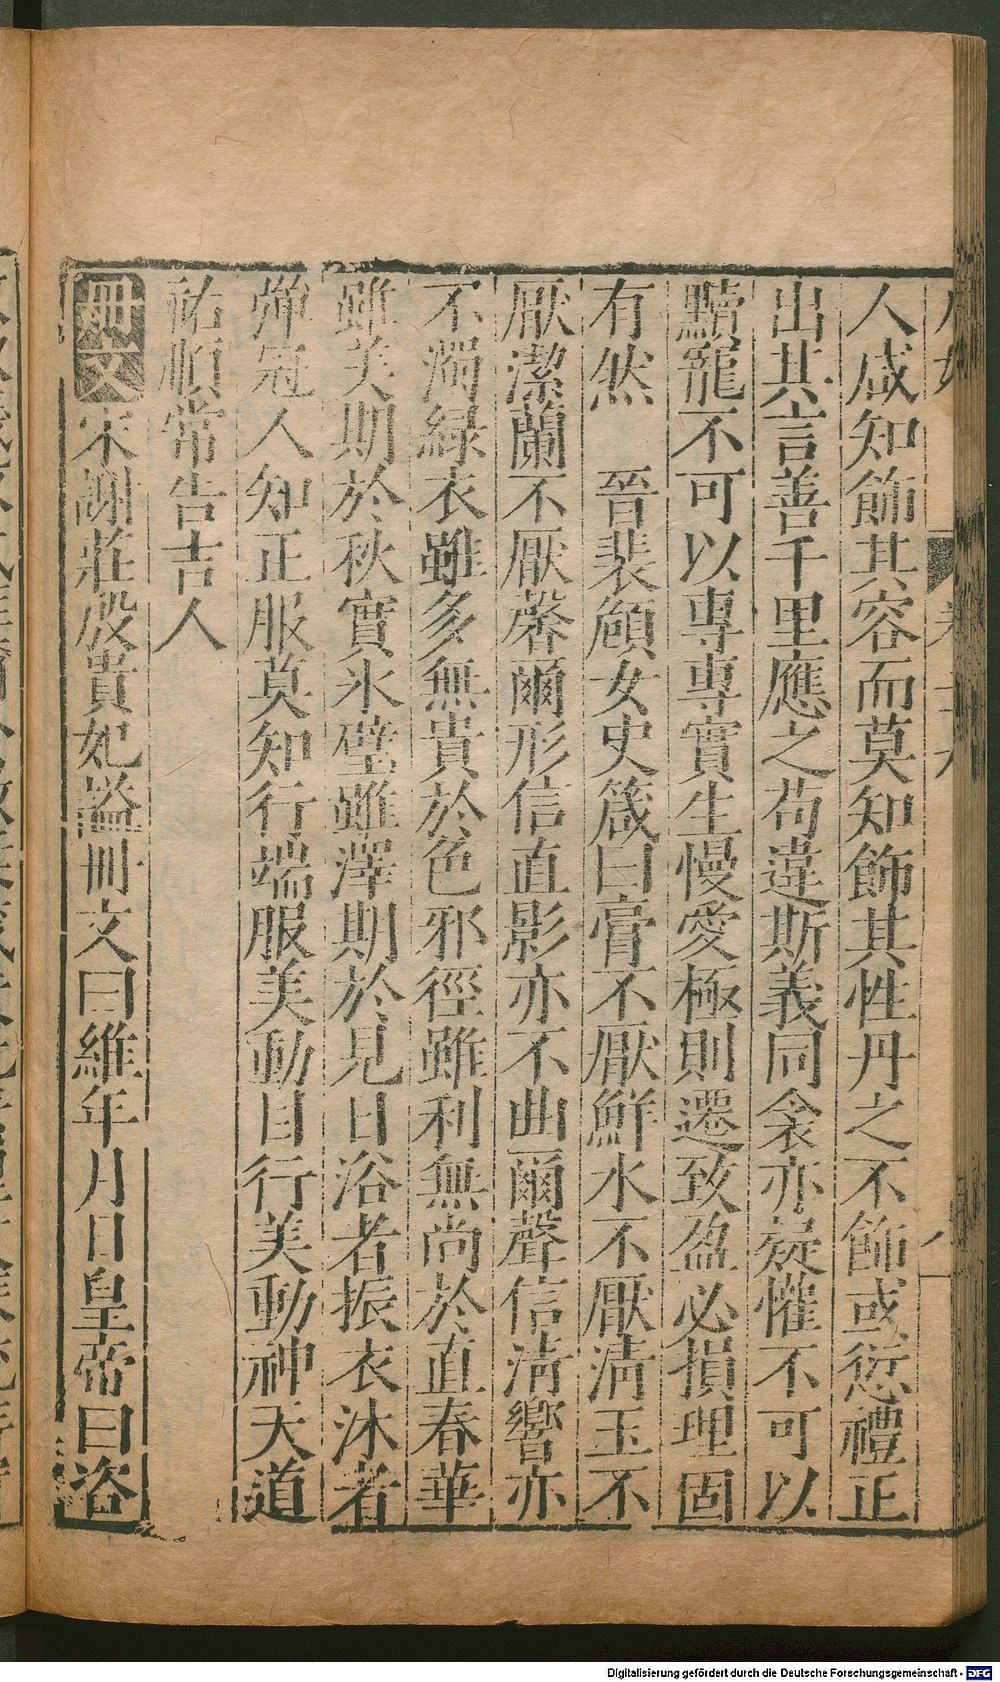 人咸知飾其容而莫知飾其性丹之不飾或愆禮正
出其言善千里應之苟違斯義同衾亦疑懼不可以
黷寵不可以專專實生慢愛極則遷致盈必損理固
有然　晉裴頠女史箴曰膏不厭鮮水不厭淸玉不
厭潔蘭不厭馨爾形信直影亦不曲爾聲信淸響亦
不濁綠衣雖多無貴於色邪徑雖利無尚於直春華
雖美期於秋實氷璧雖澤期於見日浴者振衣沐者
彈冠人知正服莫知行端服美動目行美動神天道
祐順常告吉人
冊文宋謝莊殷貴妃謚冊文曰維年月日皇帝曰咨
Digitalisierung gefördert durch die Deutsche Forschungsgemeinschaft - DFG